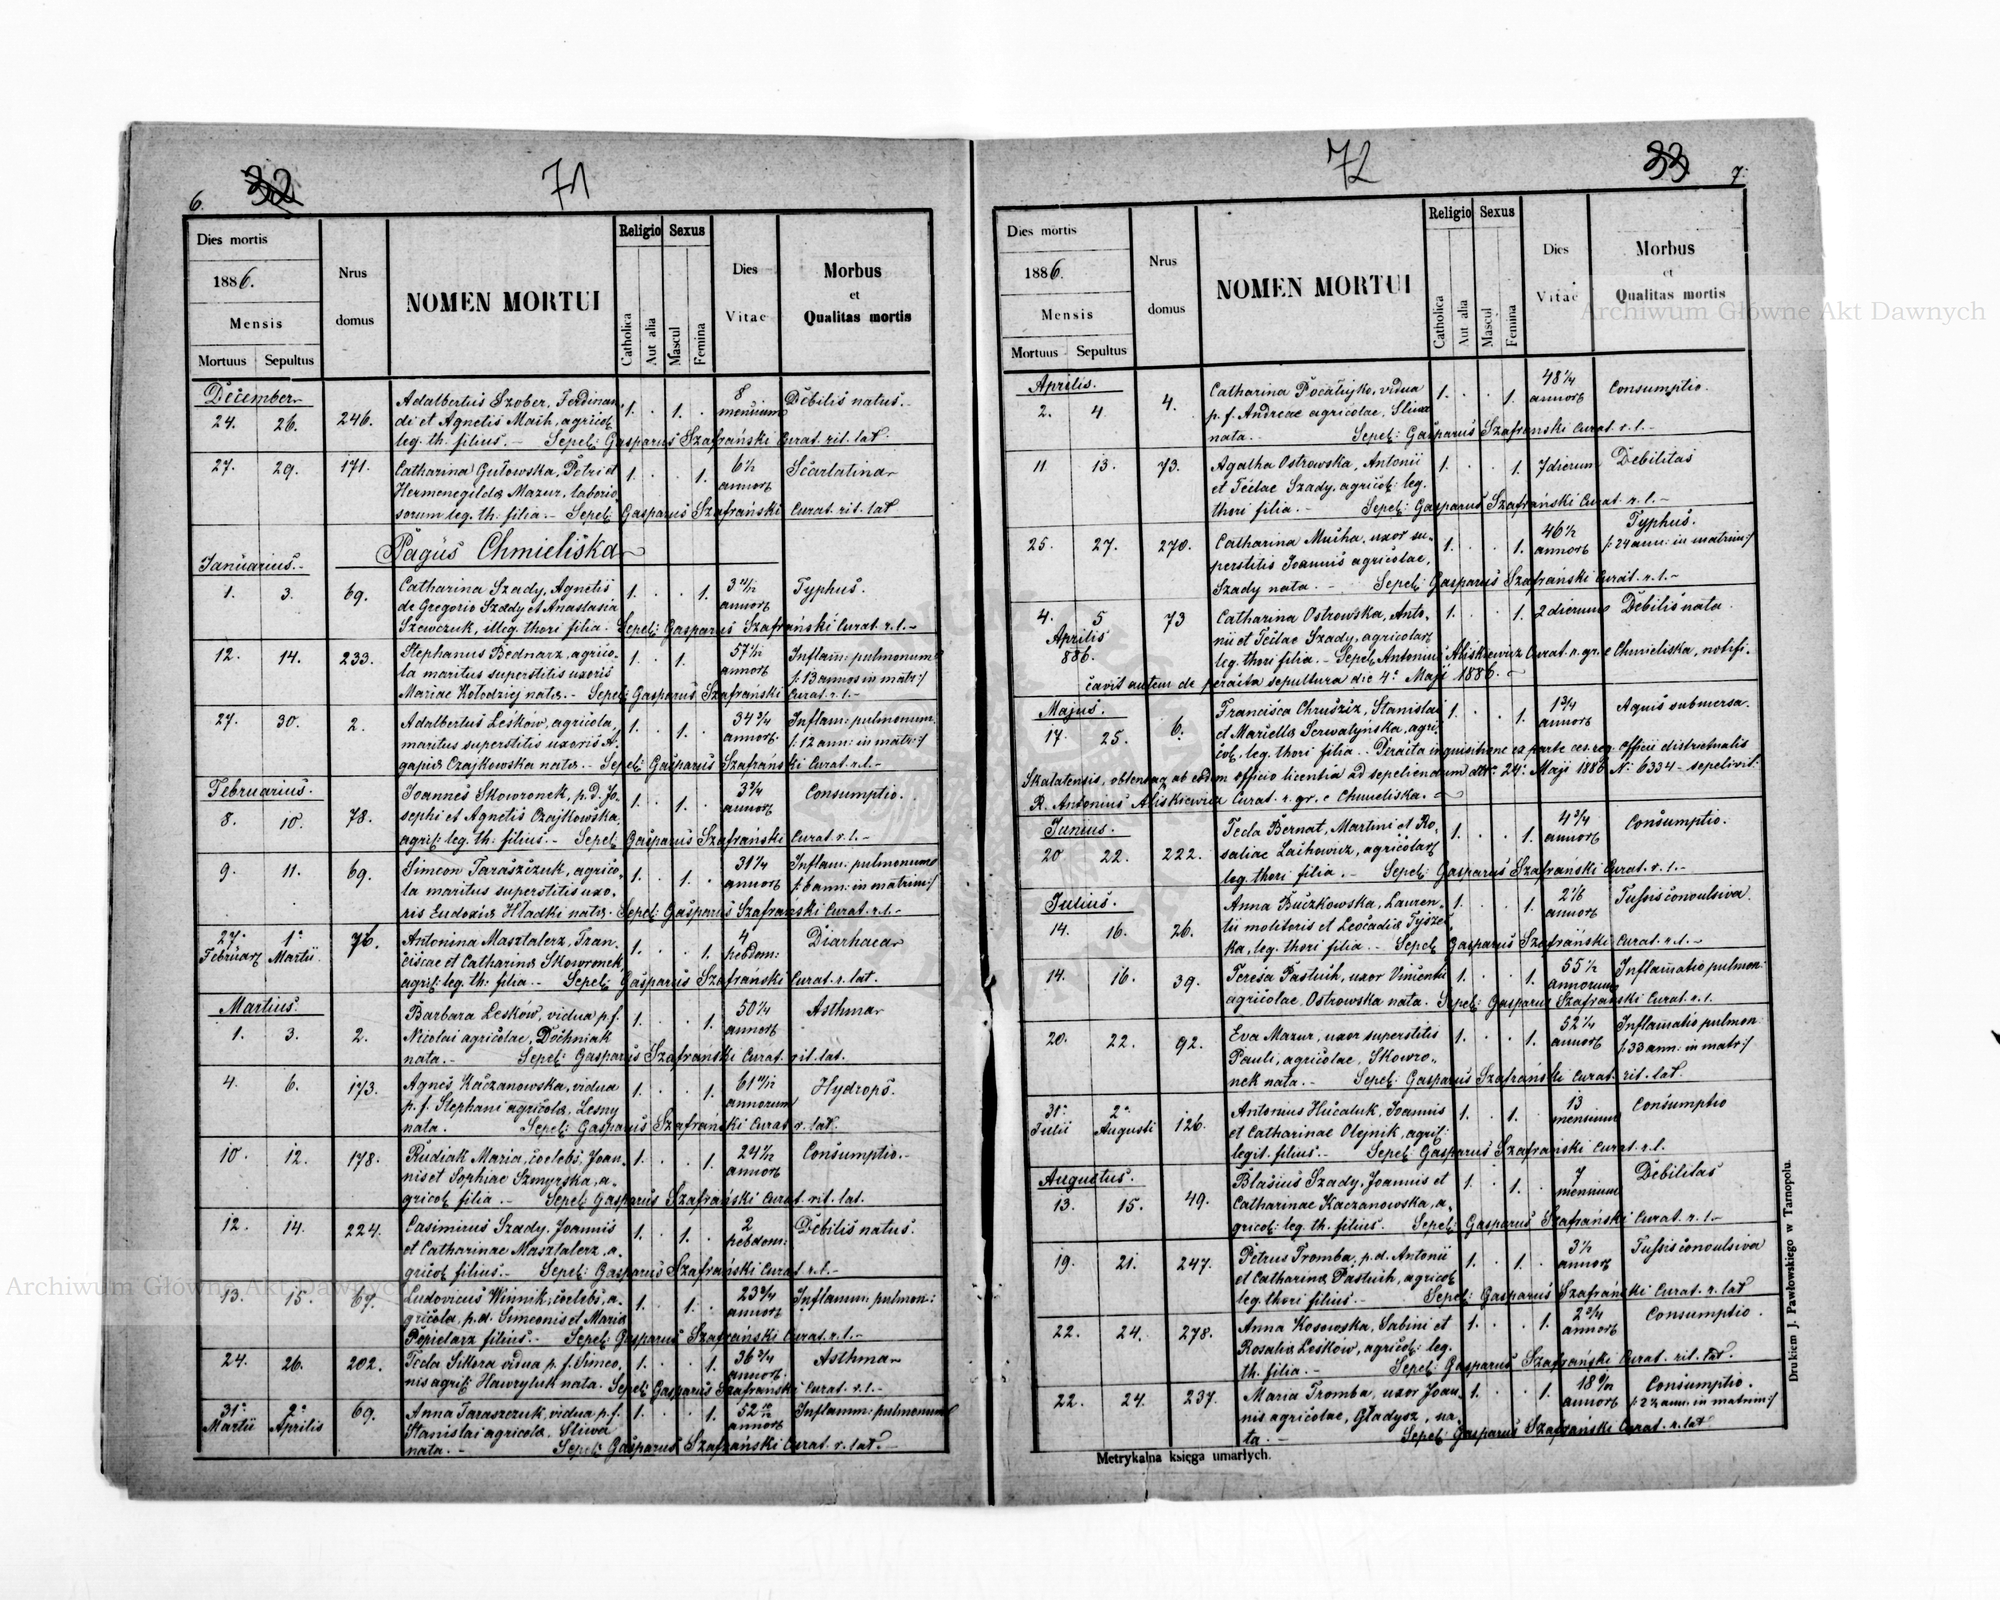 6.
32
71
Dies mortis
1886.
Mensis
Mortuus Sepultus
Nrus
domus
NOMEN MORTUI
Religio
Catholica
Aut alia
Sexus
Mascul
Femina
Dies
Vitae
Morbus
et
Qualitas mortis
December
24. 26. 246. Adalbertus Szober, Ferdinan- 1. . 1. . 8 mensium Debilis natus.
di et Agnetis Maih, agricol.
leg. th. filius. – Sepel: Gasparus Szafrański Curat. rit. lat.
27. 29. 171. Catharina Gutowska, Petri et 1. . . 1. 6½ annor. Scarlatina
Hermenegilda Mazur, laborio
sorum leg. th. filia. – Sepel: Gasparus Szafrański Curat. rit. lat
Pagus Chmieliska
Januarius.
1. 3. 69. Catharina Szady, Agnetis 1. . . 1. 3 11/12 annor. Typhus.
de Gregorio Szady et Anastasia
Szewczuk, illeg. thori filia. Sepel: Gasparus Szafrański Curat. r. l. –
12. 14. 233. Stephanus Bednarz, agrico- 1. . 1. 57 annor. Inflam: pulmonum
la maritus superstitis uxoris /: 13 annos in matr: /
Mariae Kolodziej nata. – Sepel: Gasparus Szafrański Curat. r. l. –
27. 30. 2. Adalbertus Leśków, agricola, 1. . 1. . 34 ¾ annor. Inflam: pulmonum.
maritus superstitis uxoris A- /: 12 ann: in matr: /
gapia Czajkowska nata. – Sepel: Gasparus Szafrański Curat. r. l. –
Februarius.
8. 10. 78. Joannes Skowronek, p. d. Jo- 1. . 1. . 3 ¾ annor. Consumptio.
sephi et Agnetis Czajkowska,
agril: leg. th: filius. – Sepel: Gasparus Szafrański Curat. r. l. –
9. 11. 69. Simeon Taraszczuk, agrico- 1. . 1. . 31 ¼ annor. Inflam: pulmonum
la maritus superstitis uxo- /: 6 ann: in matrim: /
ris Eudoxia Hładki nata. Sepel: Gasparus Szafrański Curat. r. l. –
27. Februar. 1. Martii. 76. Antonina Masztalerz, Fran- 1. . . 1. 4 hebdom: Diarhaea
ciscae et Catharina Skowronek,
agril: leg. th: filia. – Sepel: Gasparus Szafrański Curat. r. lat.
Martius.
1. 3. 2. Barbara Lesków, vidua p. f. 1. . . 1. 50 ¼ annor. Asthma
Nicolai agricolae, Dochniak
nata. – Sepel: Gasparus Szafrański Curat. rit. lat.
4. 6. 173. Agnes Kaczanowska, vidua 1. . . 1. 61 annorum Hydrops.
p. f. Stephani agricola, Lesny
nata. Sepel: Gasparus Szafrański Curat r. lat.
10. 12. 178. Rudiak Maria, coelebs, Joan- 1. . . 1. 24 annor. Consumptio. –
nis et Sophiae Szmyrska, a-
gricol. filia. – Sepel: Gasparus Szafrański Curat. rit. lat.
12. 14. 224. Casimirus Szady, Joannis 1. . 1. . 2 hebdom: Debilis natus.
et Catharinae Masztalerz, a-
gricol. filius. – Sepel: Gasparus Szafrański Curat. r. l. –
13. 15. 67. Ludovicus Winnik, coelebs, a- 1. . 1. . 23 ¾ annor. Inflamm: pulmon:
gricola, p. d. Simeonis et Maria
Pepielarz filius. – Sepel: Gasparus Szafrański Curat. r. l. –
24. 26. 202. Tecla Sikora vidua p. f. Simeo- 1. . . 1. 36 ¾ annor. Asthma
nis agril: Hawryluk nata. Sepel: Gasparus Szafrański Curat. r. l. –
31. Martii 2. Aprilis 69. Anna Taraszczuk, vidua p. f. 1. . . 1. 52 10/12 annor. Inflamm: pulmonum
Stanislai agricola, Sliwa
nata. – Sepel: Gasparus Szafrański Curat. r. lat. –
72
33
7.
Dies mortis
1886.
Mensis
Mortuus Sepultus
Nrus
domus
NOMEN MORTUI
Religio
Catholica
Aut alia
Sexus
Mascul
Femina
Dies
Vitae
Morbus
et
Qualitas mortis
Aprilis.
2. 4. 4. Catharina Pocałujko, vidua 1. . . 1. 48 ¼ annor. Consumptio.
p. f. Andreae agricolae, Sliwa
nata. – Sepel: Gasparus Szafrański Curat. r. l. –
11. 13. 73. Agatha Ostrowska, Antonii 1. . . 1. 7 dierum Debilitas
et Teclae Szady, agricol: leg.
thori filia. – Sepel: Gasparus Szafrański Curat. r. l. –
25. 27. 270. Catharina Mucha, uxor su- 1. . . 1. 46 ½ annor. Typhus.
perstitis Joannis agricolae, /: 24 ann: in matrim: /
Szady nata. – Sepel: Gasparus Szafrański Curat. r. l. –
4. 5 Aprilis 886. 73 Catharina Ostrowska, Anto- 1. . . 1. 2 dierum Debilis nata.
nii et Teclae Szady, agricolar.
leg. thori filia. – Sepel. Antonius Aliskiewicz Curat. r. gr. e Chmieliska, notifi-
cavit autem de peracta sepultura die 4. Maji 1886.
Majus.
17. 25. 6. Francisca Chruściz, Stanislai 1. . . 1. 1 ¾ annor. Aquis submersa.
et Mariella Serwatyńska, agri-
col. leg. thori filia. – Peracta inquisitione ex parte ces. reg. officii districtualis
Skalatensis, obtentaq ab eodem officio licentia ad sepeliendum dtto. 24. Maji 1886 N: 6334 – sepelivit.
R. Antonius Aliskiewicz Curat. r. gr. e Chmieliska.
Junius.
20 22. 222. Tecla Bernat, Martini et Ro- 1. . . 1. 4 ¾ annor. Consumptio.
saliae Laihowicz, agricolar.
leg. thori filia. – Sepel: Gasparus Szafrański Curat. r. l. –
Julius.
14. 16. 26. Anna Buczkowska, Lauren- 1. . . 1. 2 annor. Tussis convulsiva.
tii molitoris et Leocadia Tysze-
ka, leg. thori filia. – Sepel. Gasparus Szafrański Curat. r. l. –
14. 16. 39. Teresa Pastuch, uxor Vincentii 1. . . 1. 55 ½ annorum Inflamatio pulmon:
agricolae, Ostrowska nata. Sepel: Gasparus Szafrański Curat. r. l.
20. 22. 92. Eva Mazur, uxor superstitis 1. . . 1. 52 ¼ annor. Inflamatio pulmon:
Pauli, agricolae, Skowro- /: 33 ann: in matr: /
nek nata. – Sepel: Gasparus Szafrański Curat. rit. lat.
31. Julii 2. Augusti 126. Antonius Hucaluk, Joannis 1. . 1. . 13 mensium Consumptio
et Catharinae Olejnik, agril:
legit. filius. – Sepel: Gasparus Szafrański Curat. r. l.
Augustus.
13. 15. 49. Blasius Szady, Joannis et 1. . 1. . 7 mensium Debilitas
Catharinae Kaczanowska, a-
gricol: leg. th. filius. Sepel: Gasparus Szafrański Curat. r. l. –
19. 21. 247. Petrus Tromba, p. d. Antonii 1. . 1. . 3 ½ annor. Tussis convulsiva
et Catharina Pastuch, agricol.
leg. thori filius. – Sepel: Gasparus Szafrański Curat. r. lat
22. 24. 278. Anna Kosowska, Sabini et 1. . . 1. 2 ¾ annor. Consumptio.
Rosalia Leśków, agricol: leg.
th. filia. – Sepel: Gasparus Szafrański Curat. rit. lat.
22. 24. 237. Maria Tromba, uxor Joan- 1. . . 1. 18 annor. Consumptio.
nis agricolae, Gładysz, na- /: 2½ ann. in matrim: /
ta. – Sepel: Gasparus Szafrański Curat. r. lat
Metrykalna księga umarłych.
Drukiem J. Pawłowskiego w Tarnopolu.
Archiwum Główne Akt Dawnych
Archiwum Główne Akt Dawnych